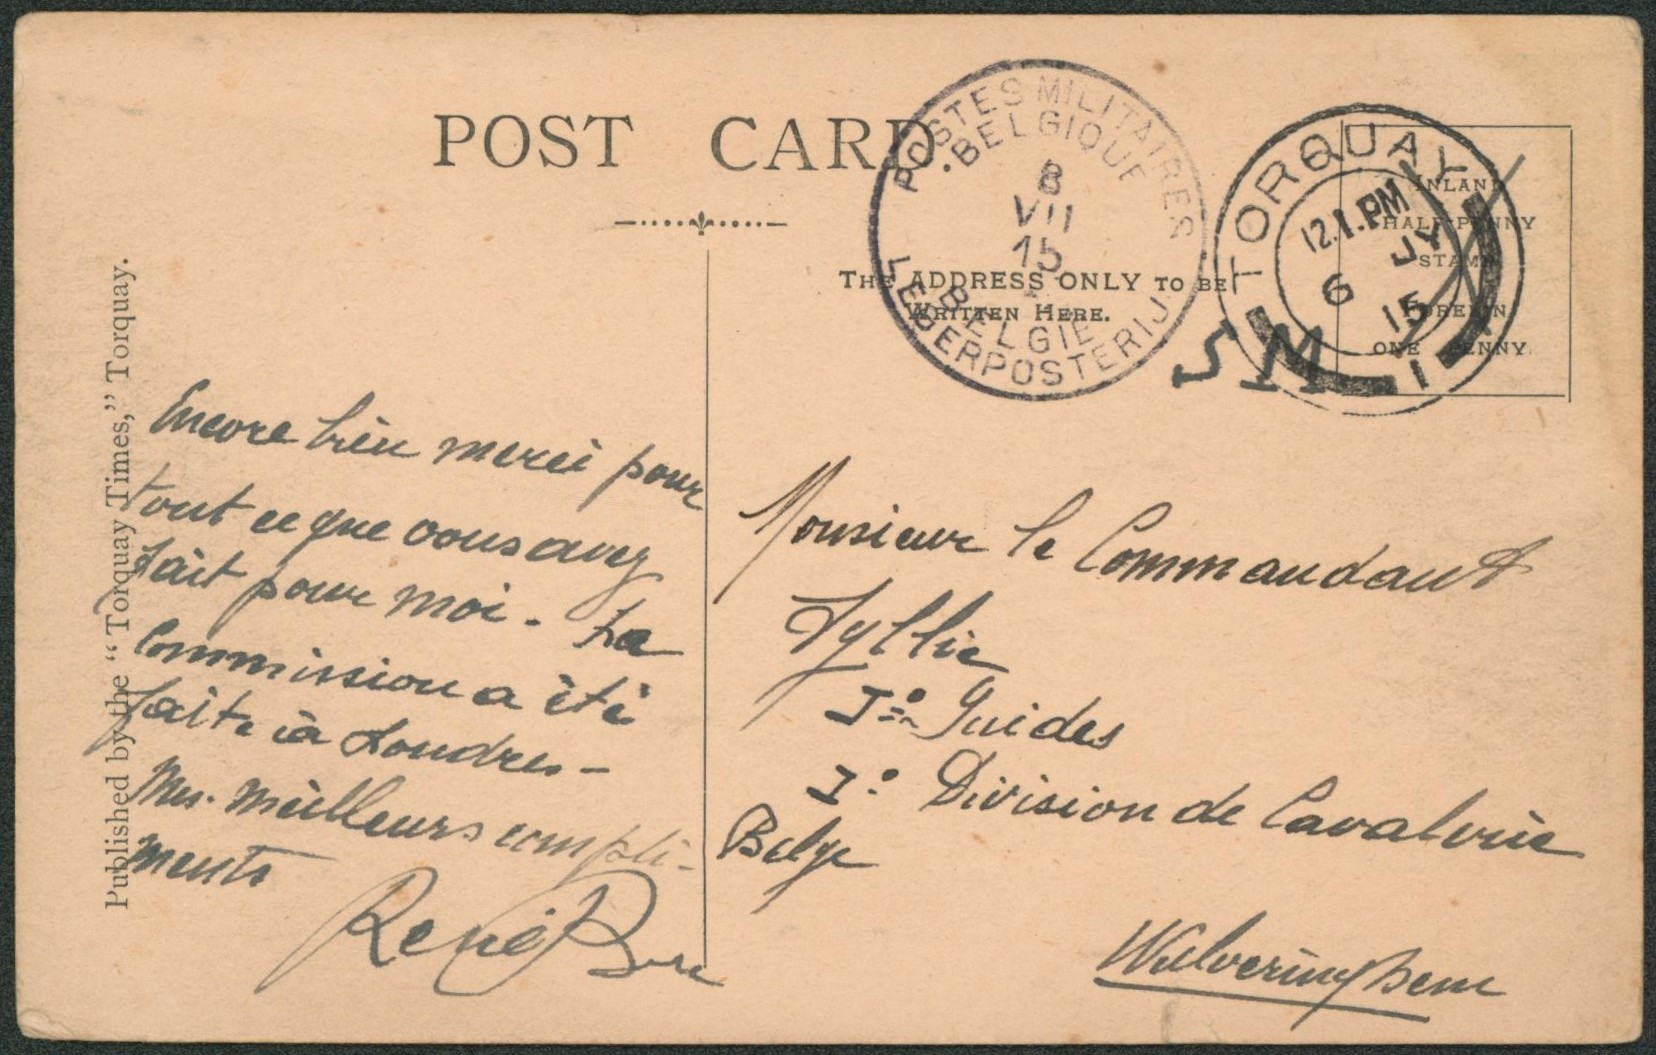 POST CARD.
POSTES MILITAIRES
BELGIQUE
8
VII
15
BELGIE
LEGERPOSTERIJ
TORQUAY
12.1.PM
6 JY
15
1
INLAND
HALF-PENNY
STAMP
FOREIGN
ONE PENNY.
THE ADDRESS ONLY TO BE
WRITTEN HERE.
SM
Published by the "Torquay Times," Torquay.
Encore bien merci pour
tout ce que vous avez
fait pour moi - La
Commission a été
faite à Londres -
Mes meilleurs compli-
ments
René
Monsieur le Commandant
1er Guides
1e Division de Cavalerie
Belge
Wulveringhem